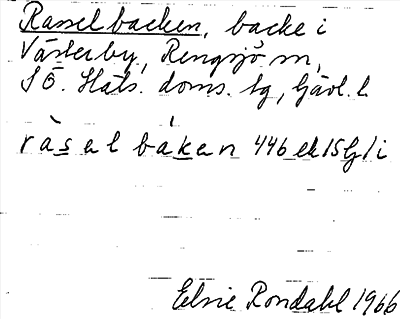 Rasselbacken, backe i
Västerby, Rengsjö sn,
SÖ. Häls. doms. sg, Gävl. l
ràsel báken 446 ek 15 G/i
Elsie Rondahl 1966